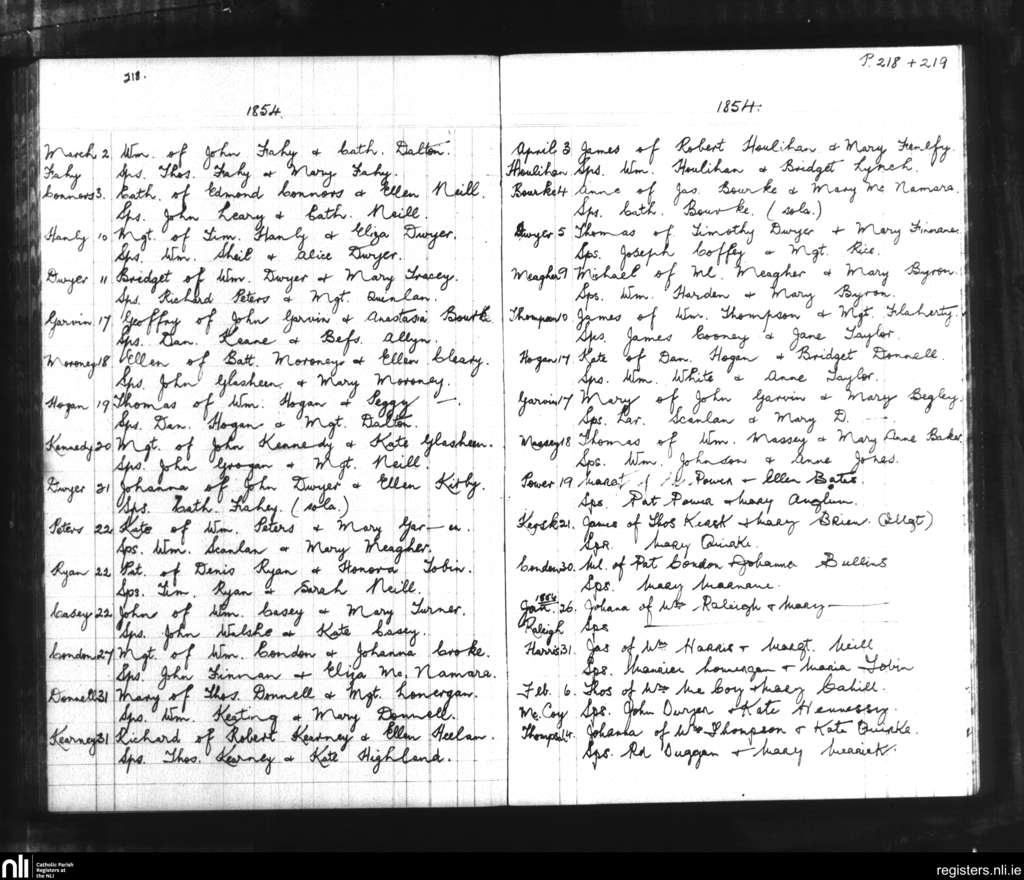 218.
1854.
March 2 Wm. of John Fahy & Cath. Dalton.
Fahy Sps. Thos. Fahy & Mary Fahy.
Connors 3. Cath. of Edmond Connors & Ellen Neill.
Sps. John Leary & Cath. Neill.
Hanly 10 Mgt. of Tim. Hanly & Eliza Dwyer.
Sps. Wm. Sheil & Alice Dwyer.
Dwyer 11 Bridget of Wm. Dwyer & Mary Tracey.
Sps. Richard Peters & Mgt. Quinlan.
Garvin 17 Geoffray of John Garvin & Anastasia Bourke
Sps. Dan. Keane & Allyn.
Moroney 18 Ellen of Batt. Moroney & Ellen Cleary.
Sps. John Glasheen & Mary Moroney.
Hogan 19 Thomas of Wm. Hogan & Peggy —.
Sps. Dan. Hogan & Mgt. Dalton.
Kennedy 20 Mgt. of John Kennedy & Kate Glasheen.
Sps. John Grogan & Mgt. Neill.
Dwyer 21 Johanna of John Dwyer & Ellen Kirby.
Sps. Cath. Fahey. (sola.)
Peters 22 Kate of Wm. Peters & Mary
Sps. Wm. Scanlan & Mary Meagher.
Ryan 22 Pat. of Denis Ryan & Honora Tobin.
Sps. Tim. Ryan & Sarah Neill.
Casey 22 John of Wm. Casey & Mary Turner.
Sps. John Walshe & Kate Casey.
Condon 27 Mgt. of Wm. Condon & Johanna Croke.
Sps. John Finnan & Eliza Mc. Namara.
Donnell 31 Mary of Thos. Donnell & Mgt. Lonergan.
Sps. Wm. Keating & Mary Donnell.
Kearney 31 Richard of Robert Kearney & Ellen Heelan.
Sps. Thos. Kearney & Kate Highland.
P. 218 + 219
1854.
April 3 James of Robert Houlihan & Mary
Houlihan Sps. Wm. Houlihan & Bridget Lynch.
Bourke 4 Anne of Jas. Bourke & Mary Mc Namara.
Sps. Cath. Bourke. (sola.)
Dwyer 5 Thomas of Timothy Dwyer & Mary Finnane.
Sps. Joseph Coffey & Mgt. Rice.
Meagher 9 Michael of Ml. Meagher & Mary Byron.
Sps. Wm. Harden & Mary Byron.
Thompson 10. James of Wm. Thompson & Mgt. Flaherty.
Sps. James Cooney & Jane Taylor.
Hogan 17 Kate of Dan. Hogan & Bridget Donnell.
Sps. Wm. White & Anne Taylor.
Garvin 17 Mary of John Garvin & Mary Begley.
Sps. Lar. Scanlan & Mary D.
Massey 18 Thomas of Wm. Massey & Mary Anne Baker.
Sps. Wm. Johnson & Anne Jones.
Power 19 Margt of Power & Ellen Bates.
Sps Pat Power & Mary Anglum.
21. James of Thos & Mary Brien.
Sps. Mary Quirke.
Condon 30. Ml. of Pat Condon & Johanna Bullins
Sps. Mary Marnane.
1854
Jan. 26. Johana of Wm Raleigh & Mary —
Raleigh Sps
Harris 31. Jas of Wm Harris & Margt. Neill
Sps. Lonergan & Maria Tobin
Feb. 6. Thos of Wm Mc Coy & Mary Cahill.
Mc. Coy Sps. John Dwyer & Kate Hennessy.
Thompson 14. Johanna of Wm Thompson & Kate Quirke.
Sps. Rd Duggan & Mary
nli
Catholic Parish
Registers at
the NLI
registers.nli.ie